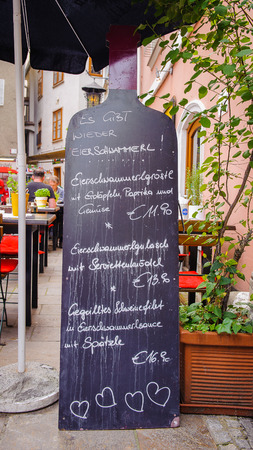 ES GIBT
WIEDER
EIERSCHWAMMERL!
Eierschwammerlgröstl
mit Erdäpfeln, Paprika und
Gemüse €11.90
Eierschwammerlgulasch
mit Serviettenknödel
€13.90
Gegrilltes Schweinefilet
in Eierschwammerlsauce
mit Spätzle
€16.90